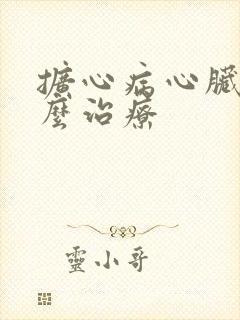 擴心病心臟
麼治療
靈小哥